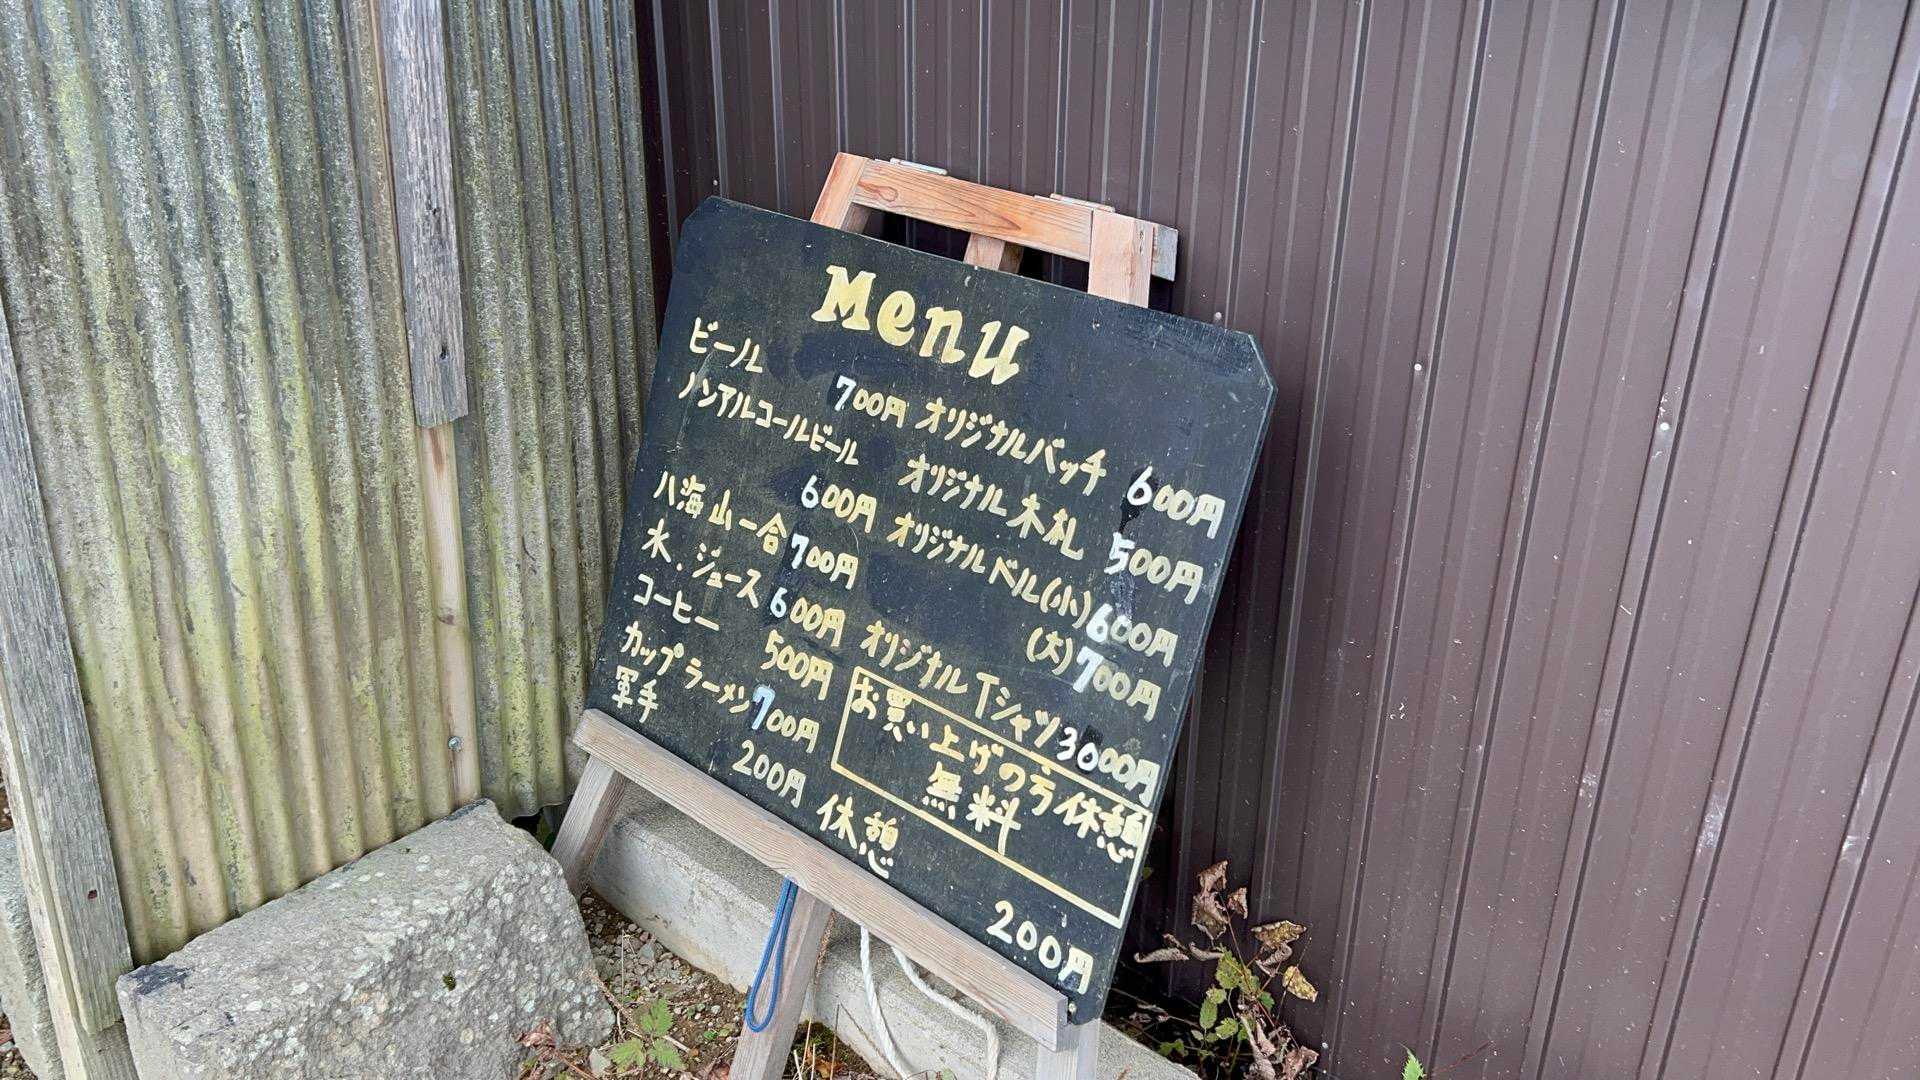 Menu
ビール 700円
ノンアルコールビール 600円
八海山一合 700円
水、ジュース 600円
コーヒー 500円
カップラーメン 700円
軍手 200円
オリジナルバッチ 600円
オリジナル木札 500円
オリジナルベル(小)600円
(大)700円
オリジナルTシャツ3000円
お買い上げの方休憩
無料
休憩 200円